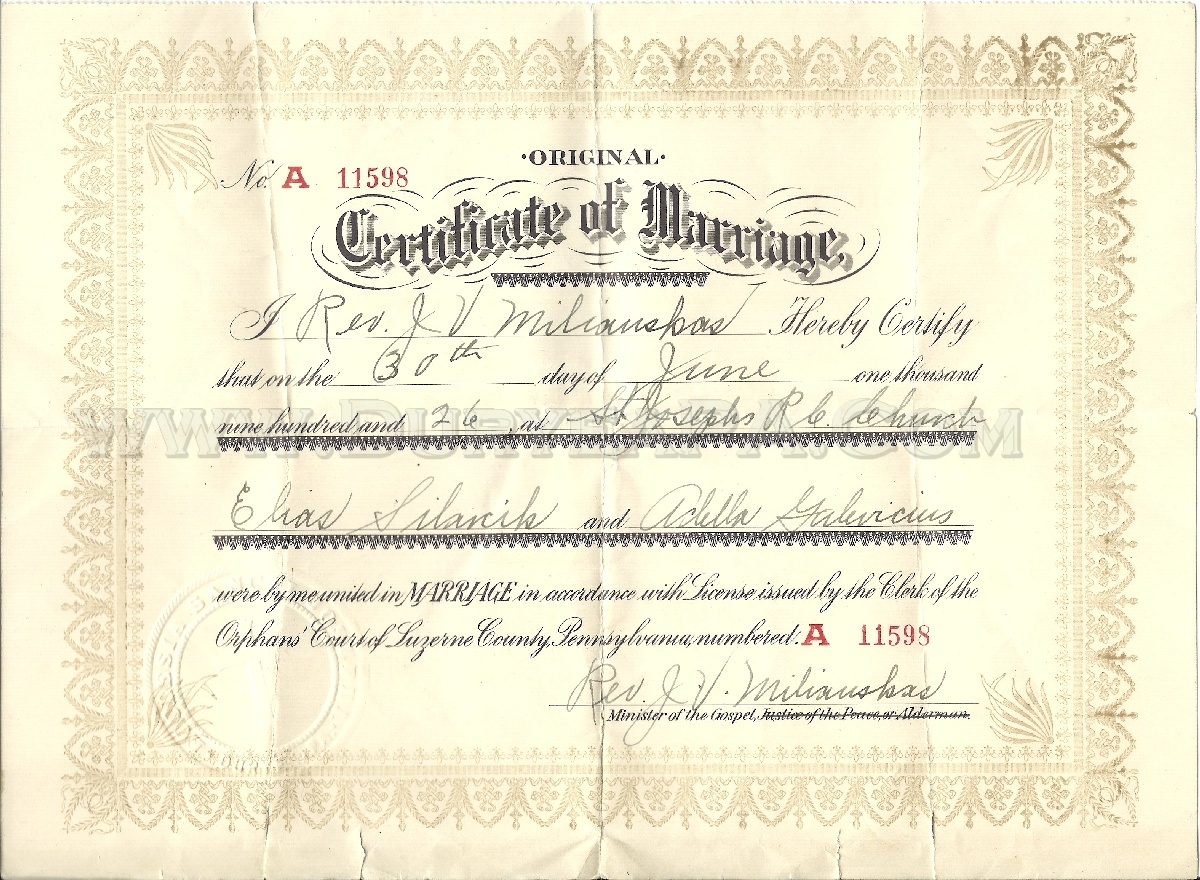 ·ORIGINAL·
No. A 11598
Certificate of Marriage.
I Rev. J V Milianskas Hereby Certify
that on the 30th day of June one thousand
nine hundred and 26, at St Josephs R. C. Church
WWW.DURYEAPA.COM
Elias Silarcik and Adella Galevicius
were by me united in MARRIAGE in accordance with License issued by the Clerk of the
Orphans' Court of Luzerne County, Pennsylvania, numbered: A 11598
Rev J. V. Milianskas
Minister of the Gospel, Justice of the Peace, or Alderman.